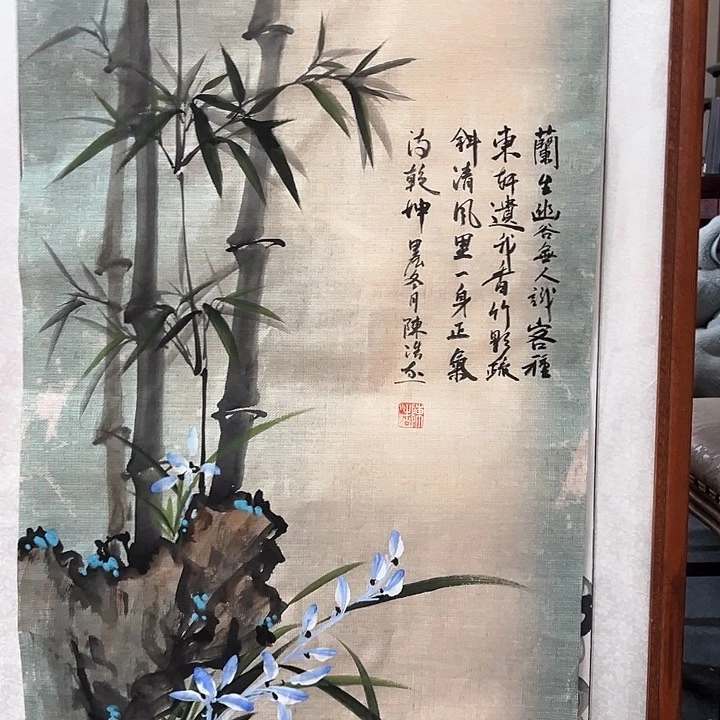 蘭生幽谷無人識客種
東軒遺我香竹影疏
斜清風里一身正氣
滿乾坤冬月陳浩